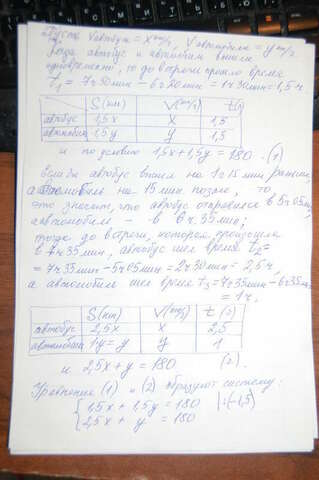 Пусть Vавтобуса = x км/ч, Vавтомобиля = y км/ч
Когда автобус и автомобиль вышли
одновременно, то до встречи прошло время
t₁ = 7ч30мин – 6ч00мин = 1ч30мин = 1,5ч
S(км) V(км/ч) t(ч)
автобус 1,5x x 1,5
автомобиль 1,5y y 1,5
и по условию 1,5x+1,5y = 180 (1)
Если бы автобус вышел на 1ч15мин раньше,
а автомобиль на 15 мин позже, то
это значит, что автобус отправился в 5ч05мин,
автомобиль – в 6ч35мин;
тогда до встречи, которая произошла
в 7ч35мин, автобус шел время t₂=
= 7ч35мин – 5ч05мин = 2ч30мин = 2,5ч,
а автомобиль шел время t₃ = 7ч35мин – 6ч35мин
= 1ч.
S(км) V(км/ч) t(ч)
автобус 2,5x x 2,5
автомобиль 1·y=y y 1
и 2,5x+y = 180 (2).
Уравнения (1) и (2) образуют систему:
{ 1,5x + 1,5y = 180 |:(-1,5)
2,5x + y = 180